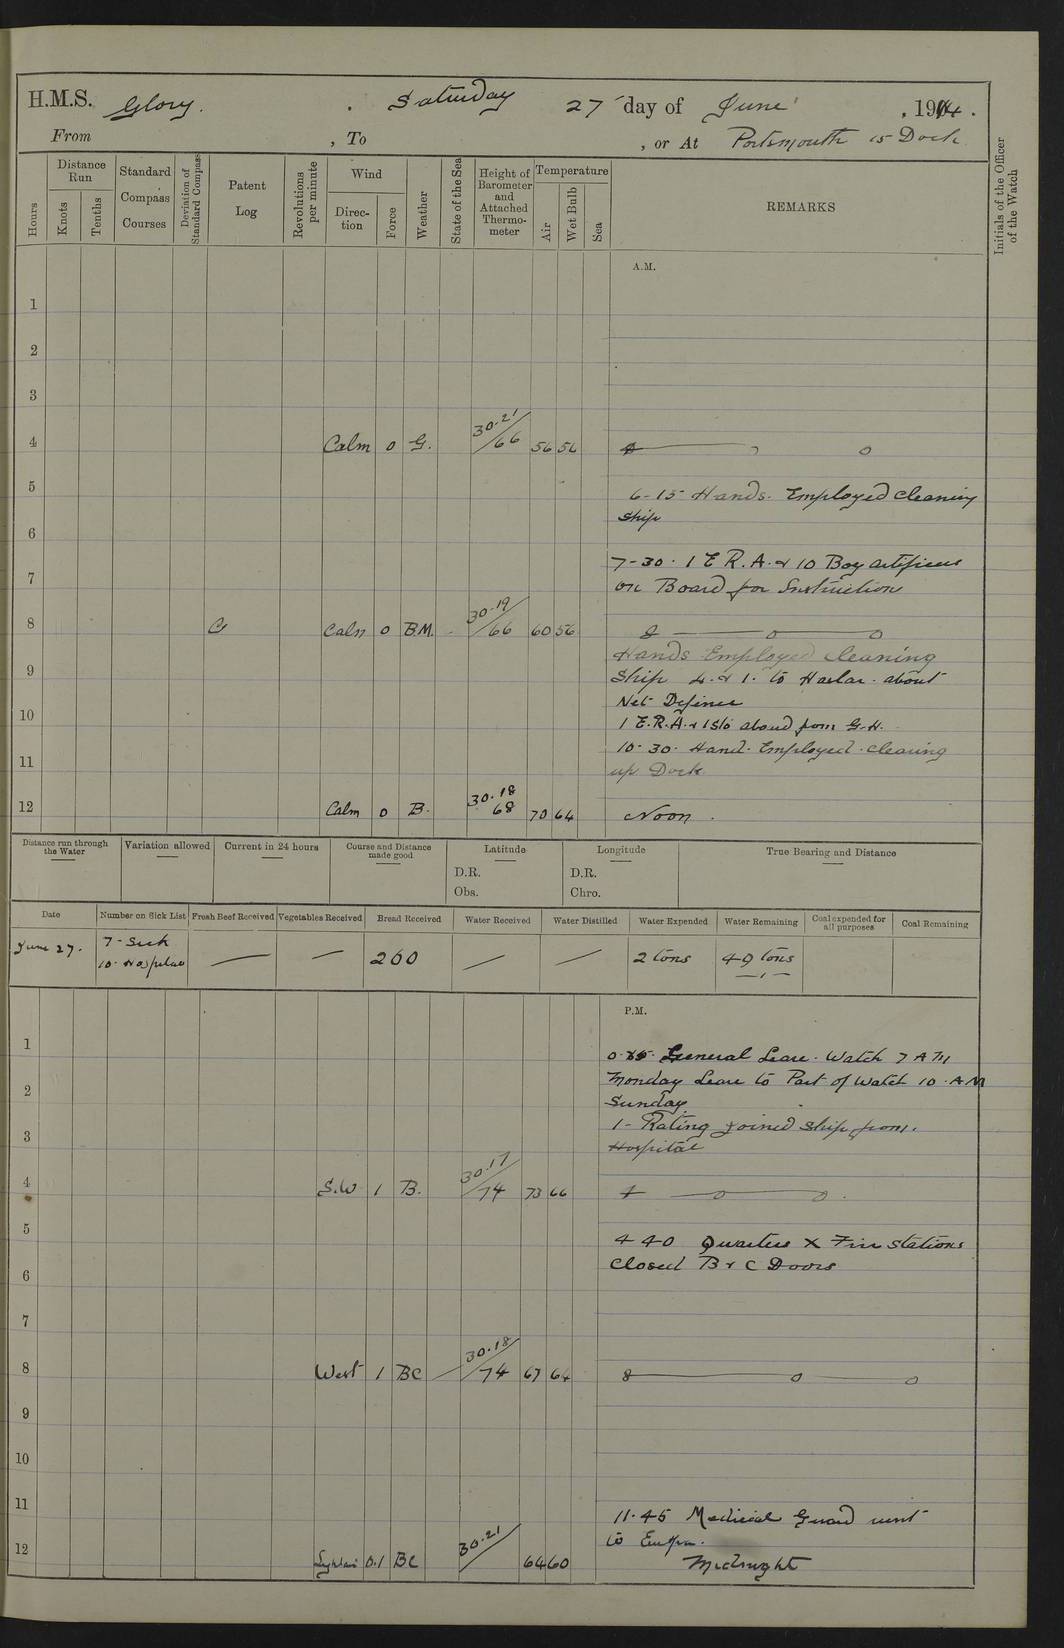 H.M.S. Glory. Saturday 27 day of June, 1914.
From , To , or At Portsmouth 15 Dock
Hours
Distance Run
Knots
Tenths
Standard Compass Courses
Deviation of Standard Compass
Patent Log
Revolutions per minute
Wind
Direction
Force
Weather
State of the Sea
Height of Barometer and Attached Thermometer
Temperature
Air
Wet Bulb
Sea
REMARKS
Initials of the Officer of the Watch
A.M.
1
2
3
4 Calm 0 G. 30.21/66 56 56 4
5
6-15 Hands Employed Cleaning
Ship
6
7-30. 1 E.R.A. & 10 Boy artificers
7
on Board for Instruction
8 Calm 0 B.M. 30.19/66 60 56 8
Hands Employed Cleaning
9
Ship 4. & 1. to Haslar about
Net Defence
10
1 E.R.A. & 1 Sto aboard from G.H.
10-30. Hands Employed clearing
11
up Dock
12 Calm 0 B. 30.18 68 70 64 Noon.
Distance run through the Water
Variation allowed
Current in 24 hours
Course and Distance made good
Latitude
D.R.
Obs.
Longitude
D.R.
Chro.
True Bearing and Distance
Date
Number on Sick List
Fresh Beef Received
Vegetables Received
Bread Received
Water Received
Water Distilled
Water Expended
Water Remaining
Coal expended for all purposes
Coal Remaining
June 27. 7-Sick 260 2 tons 49 tons
10-Hospital
P.M.
1
General Leave. Watch 7 AM
Monday Leave to Part of Watch 10. AM
2
Sunday.
1- Rating joined ship from.
3
Hospital
4 S.W 1 B. 30.17/74 73 66 4
5
4 40 Quarters X Fire Stations
Closed B & C Doors
6
7
8 West 1 BC 30.18/74 67 64 8
9
10
11
11.45 Medical Guard went
to
12 0.1 BC 30.21 64 60 Midnight